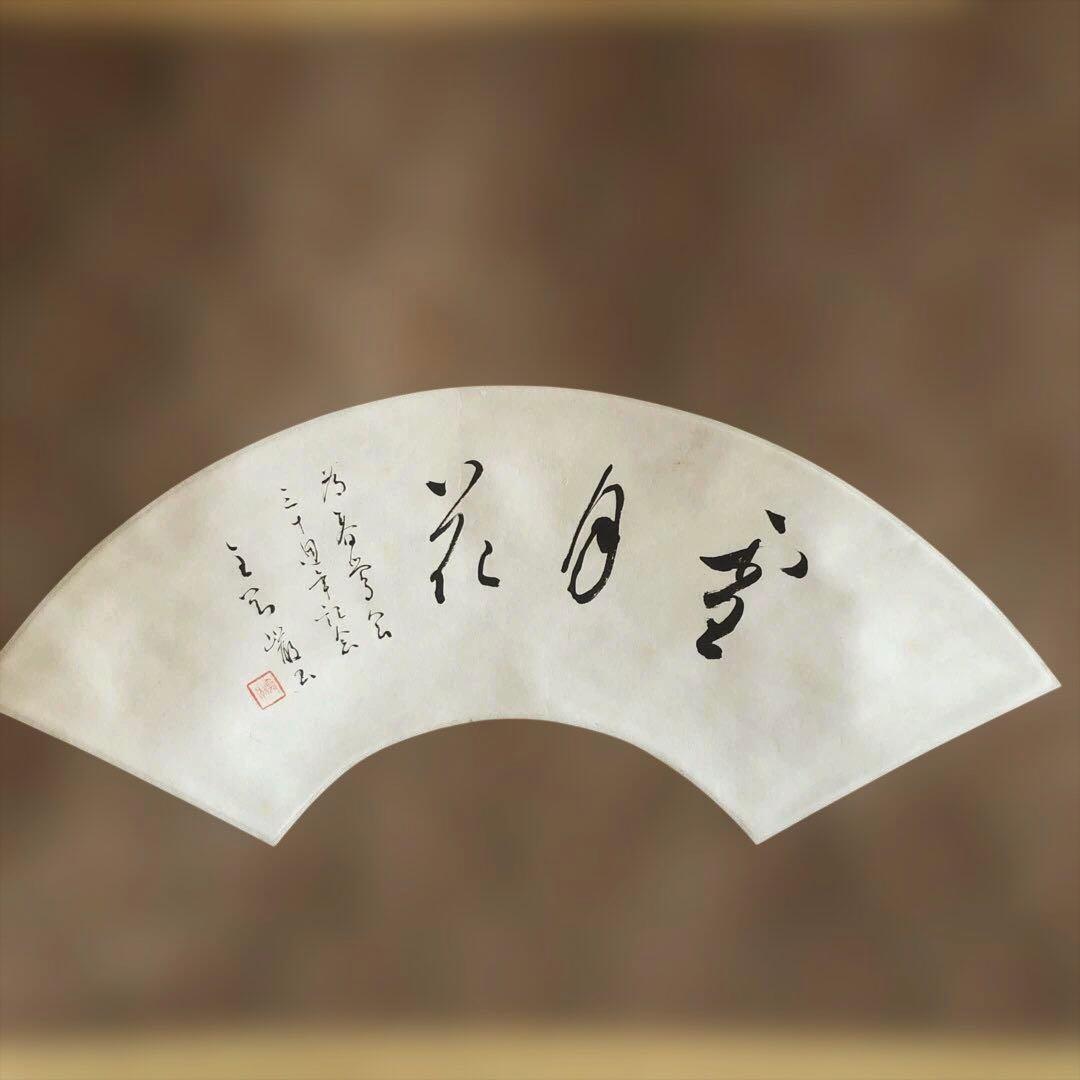 雪月花
為春鶯会
三十周年記念
玄巌書